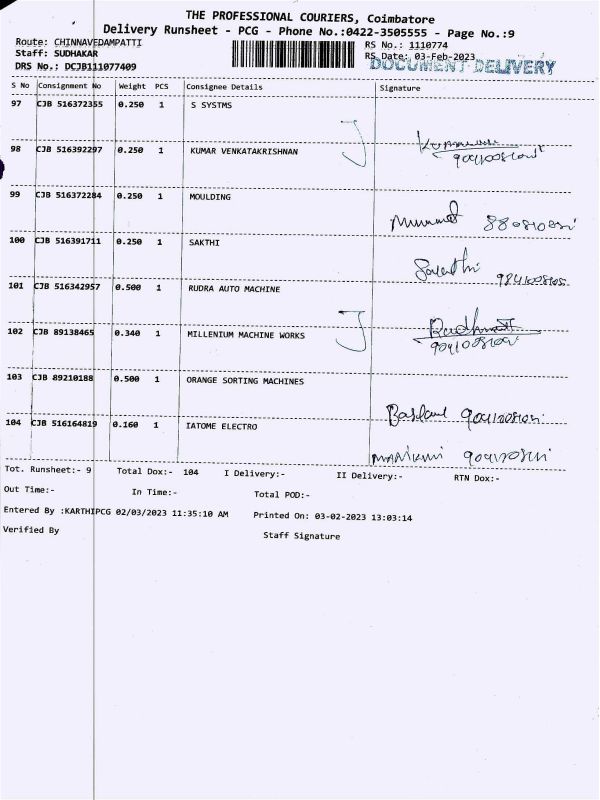 THE PROFESSIONAL COURIERS, Coimbatore
Delivery Runsheet - PCG - Phone No.:0422-3505555 - Page No.:9
Route: CHINNAVEDAMPATTI
Staff: SUDHAKAR
DRS No.: DCJB111077409
RS No.: 1110774
RS Date: 03-Feb-2023
DOCUMENT DELIVERY
S No Consignment No Weight PCS Consignee Details Signature
97 CJB 516372355 0.250 1 S SYSTMS
98 CJB 516392297 0.250 1 KUMAR VENKATAKRISHNAN
99 CJB 516372284 0.250 1 MOULDING
100 CJB 516391711 0.250 1 SAKTHI
101 CJB 516342957 0.500 1 RUDRA AUTO MACHINE
102 CJB 89138465 0.340 1 MILLENIUM MACHINE WORKS
103 CJB 89210188 0.500 1 ORANGE SORTING MACHINES
104 CJB 516164819 0.160 1 IATOME ELECTRO
Tot. Runsheet:- 9 Total Dox:- 104 I Delivery:- II Delivery:- RTN Dox:-
Out Time:- In Time:- Total POD:-
Entered By :KARTHIPCG 02/03/2023 11:35:10 AM Printed On: 03-02-2023 13:03:14
Verified By Staff Signature